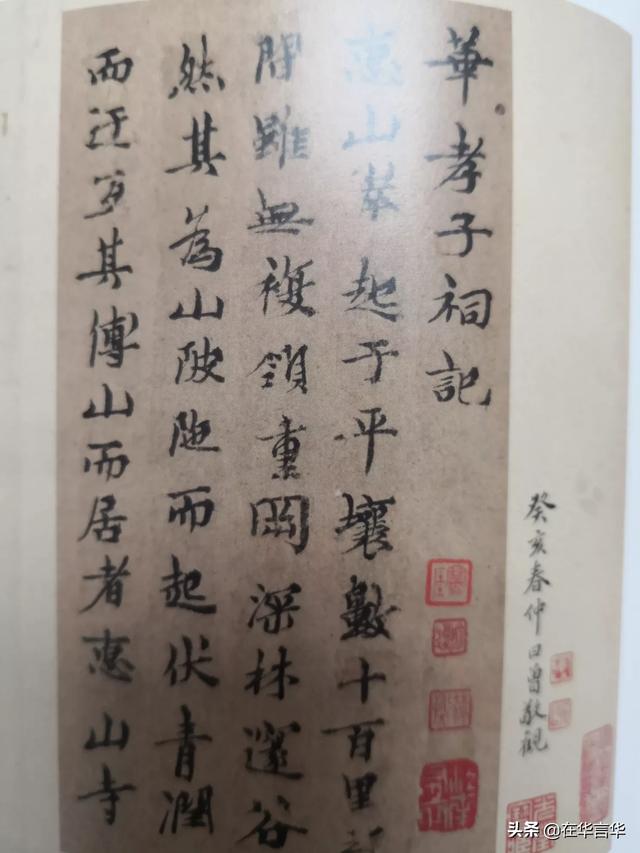 華孝子祠記
惠山峯起于平壤數十百里
間雖無複領重岡深林邃谷
然其為山陂陁而起伏青潤
而迂
其傅山而居者惠山寺
癸亥春仲曰曾敬觀
头条 @在华言华